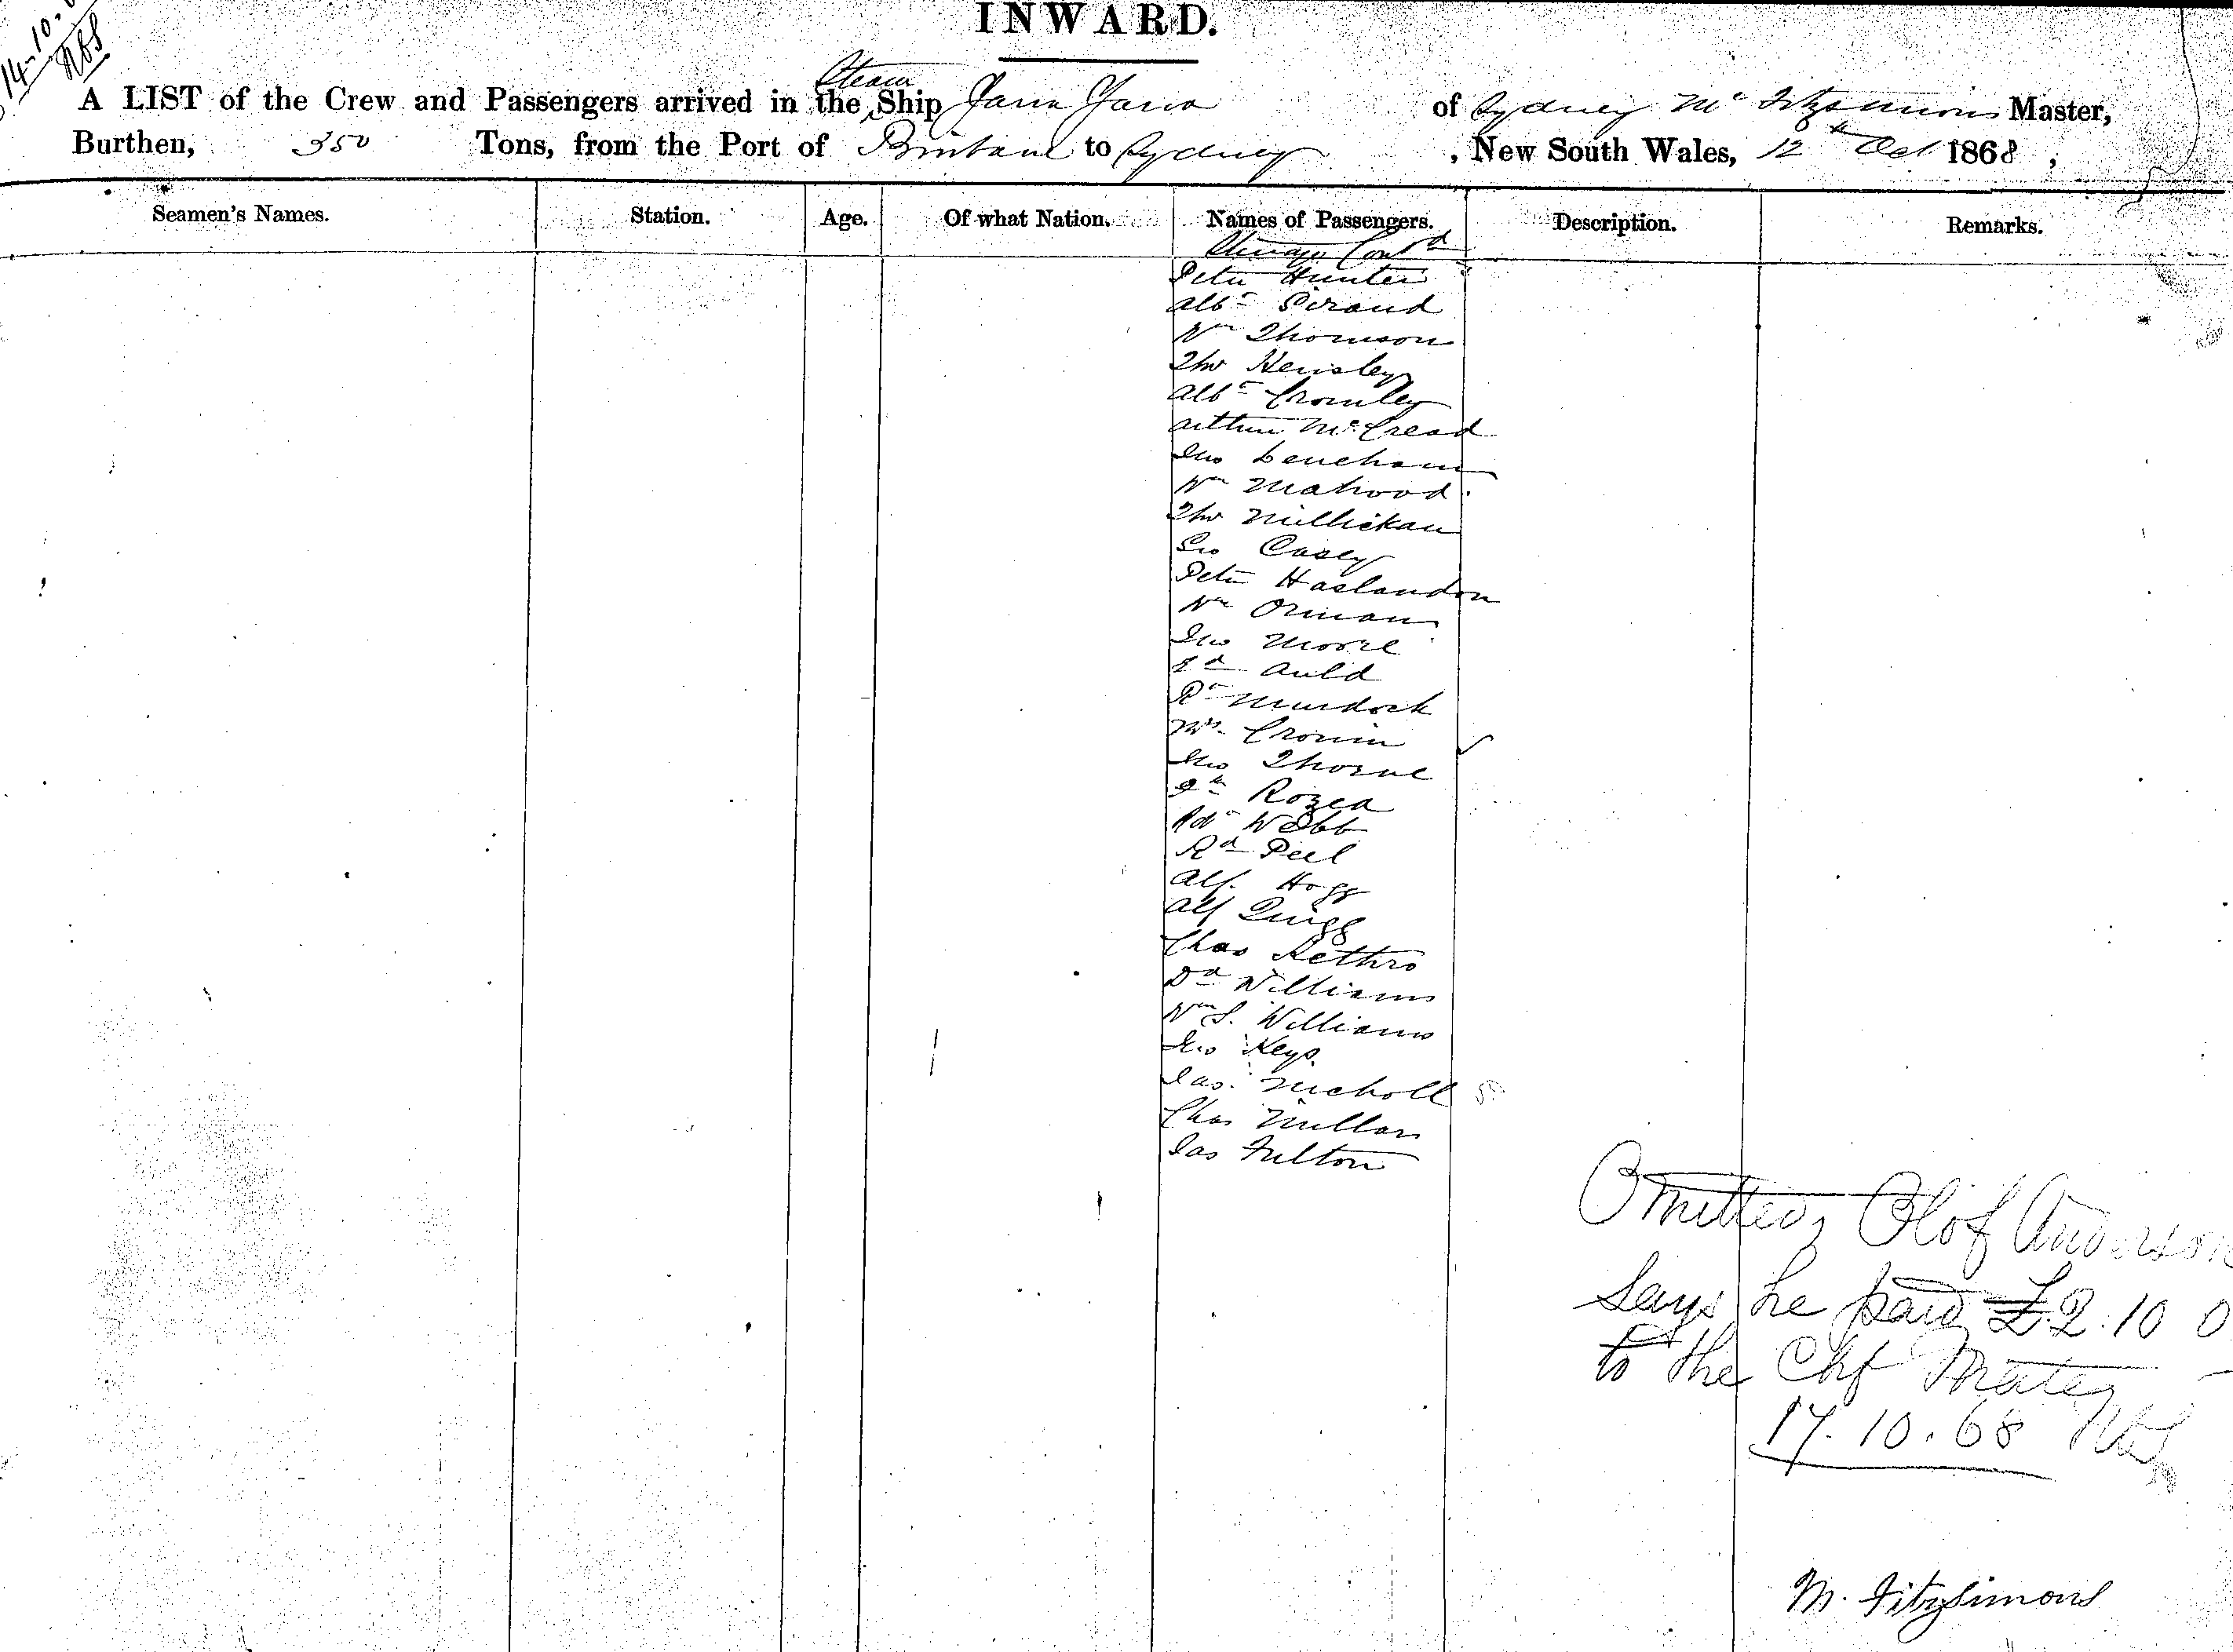 14-10-
INWARD.
A LIST of the Crew and Passengers arrived in the Steam Ship Yarra Yarra of Sydney M. Fitzsimons Master,
Burthen, 350 Tons, from the Port of Brisbane to Sydney, New South Wales, 12th Oct 1868,
Seamen's Names. Station. Age. Of what Nation. Names of Passengers. Description. Remarks.
Steerage Contd
Peter Hunter
Albt Girand
Wm Thomson
Thos Hensley
Albt Cromley
Arthur McCread
Jno Lencham
Wm Mahood
Thos Millickan
Geo Casey
Peter Haslandon
Wm Orman
Jno Moore
Ed Auld
Rt Murdock
Mrs Cronin
Jno Thorne
Rozea
Webb
Rd Peel
Alf. Hogg
Alf Quigg
Chas Rethro
Dd Williams
Wm S. Williams
Jno Keys
Jas. Nicholl
Chas Millar
Jas Fulton
Omitted, Olof Anderson
Says he paid £2.10 0
to the Chf Mate
17.10.68
M. Fitzsimons